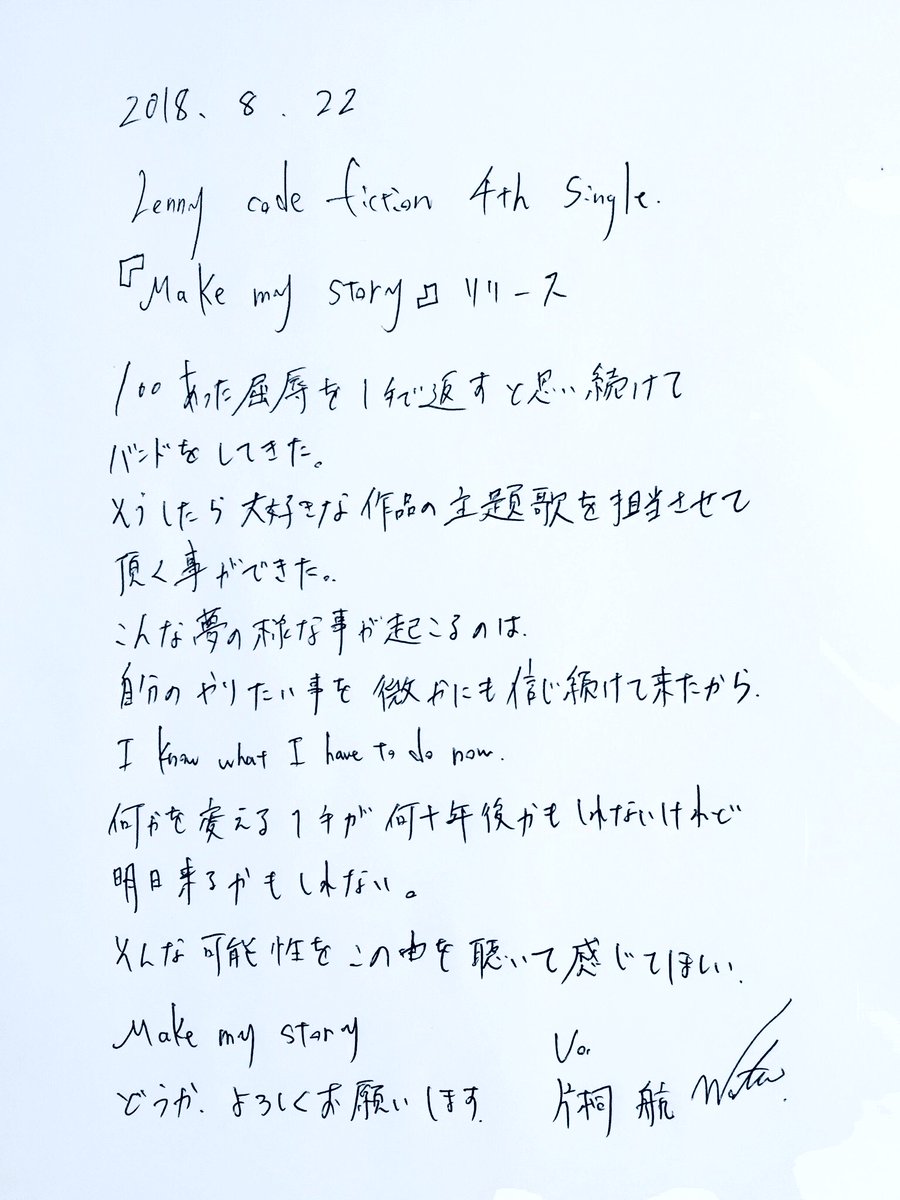 2018. 8. 22
Lenny code fiction 4th Single.
『Make my story』リリース
100あった屈辱を1手で返すと思い続けて
バンドをしてきた。
そうしたら大好きな作品の主題歌を担当させて
頂く事ができた。
こんな夢の様な事が起こるのは、
自分のやりたい事を微かにも信じ続けて来たから。
I know what I have to do now.
何かを変える1手が何十年後かもしれないけれど
明日来るかもしれない。
そんな可能性をこの曲を聴いて感じてほしい。
Make my story
どうか、よろしくお願いします。
Vo.
片桐 航 Wataru